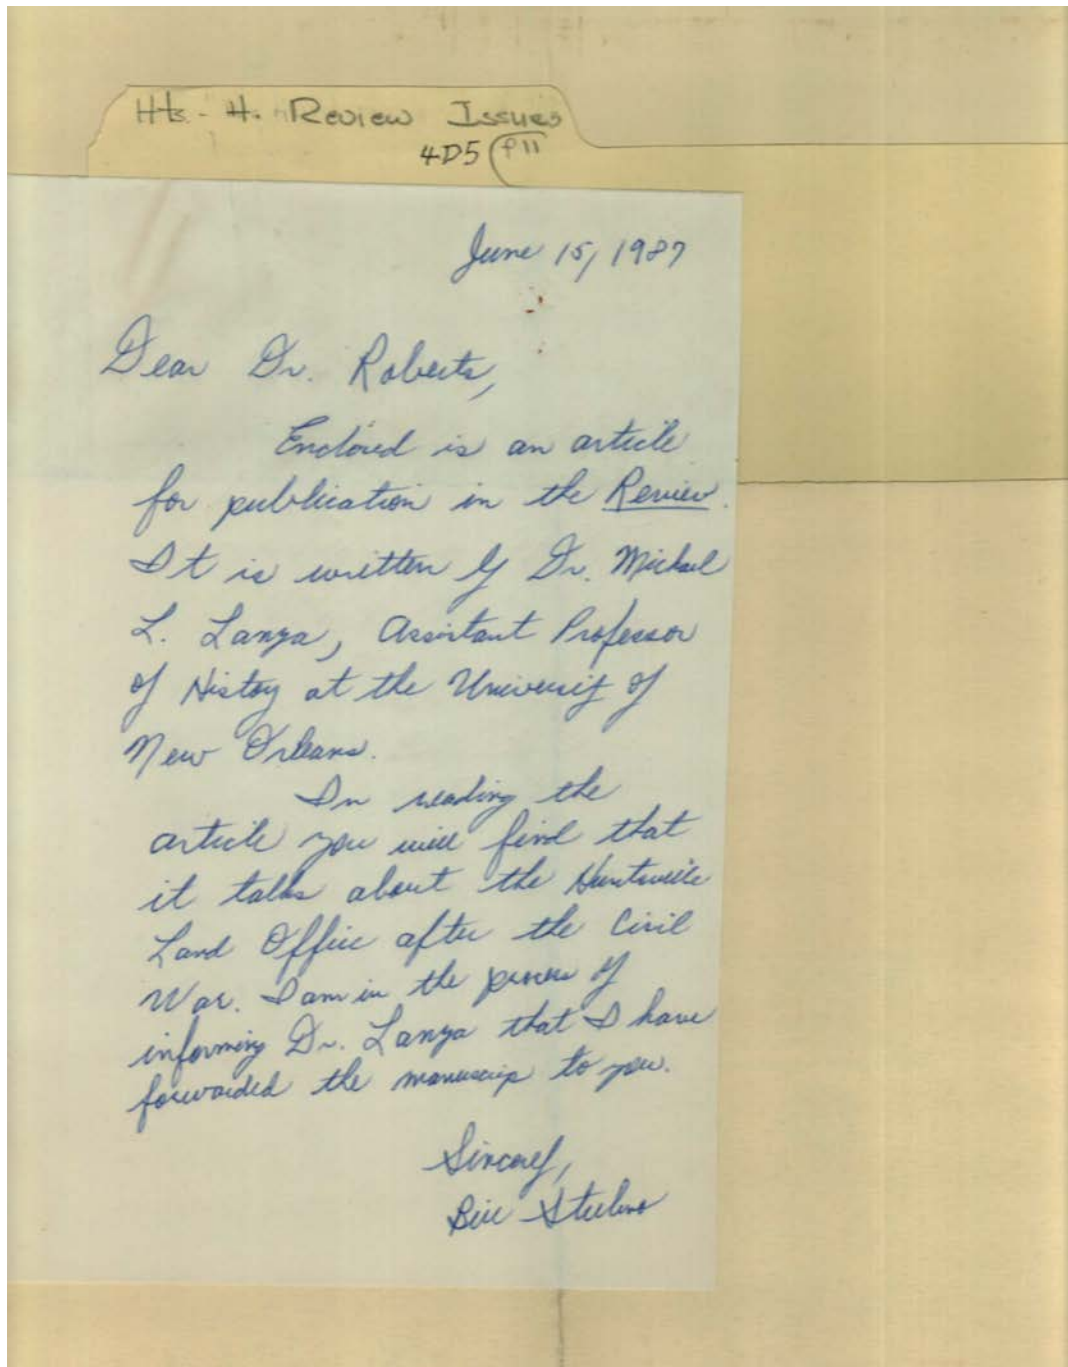 Hts - H. Review Issues
4D5 P11
June 15, 1987
Dear Dr. Roberts,
Enclosed is an article
for publication in the Review.
It is written by Dr. Michael
L. Lanza, Assistant Professor
of History at the University of
New Orleans.
In reading the
article you will find that
it talks about the Huntsville
Land Office after the Civil
War. I am in the process of
informing Dr. Lanza that I have
forwarded the manuscrip to you.
Sincerely,
Bill